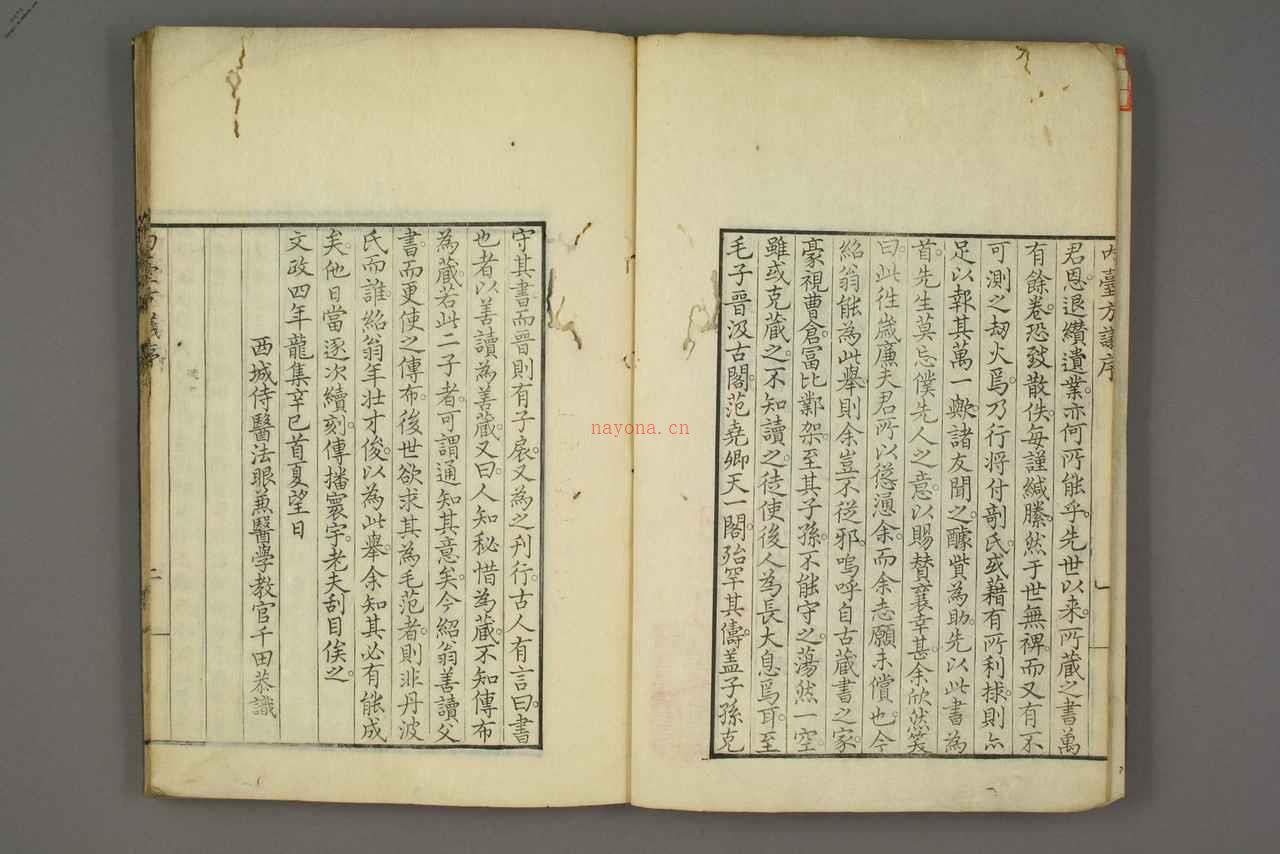 內臺方議序
君恩退纘遺業亦何所能乎先世以来所藏之書萬
有餘卷恐致散佚每謹緘縢然于世無裨而又有不
可測之劫火焉乃行将付剞氏或藉有所利捄則亦
足以報其萬一歟諸友聞之醵貲為助先以此書為
首先生莫忘僕先人之意以賜賛襄幸甚余欣然笑
曰此往歲廉夫君所以慫慂余而余志願未償也今
紹翁能為此舉則余豈不從邪嗚呼自古蔵書之家
豪視曹倉冨比鄴架至其子孫不能守之蕩然一空
雖或克蔵之不知讀之徒使後人為長大息焉耳至
毛子晋汲古閣范堯卿天一閣殆罕其儔盖子孫克
守其書而晋則有子扆又為之刋行古人有言曰書
也者以善讀為善蔵又曰人知秘惜為蔵不知傳布
為蔵若此二子者可謂通知其意矣今紹翁善讀父
書而更使之傳布後世欲求其為毛范者則非丹波
氏而誰紹翁年壮才俊以為此舉余知其必有能成
矣他日當逐次續刻傳播寰宇老夫刮目俟之
文政四年龍集辛巳首夏望日
西城侍醫法眼兼醫學教官千田恭識
二
nayona.cn